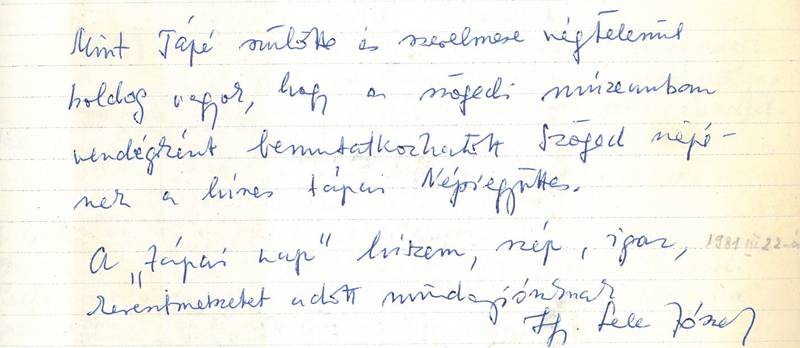 Mint Tápé szülötte és szerelmese végtelenül
boldog vagyok, hogy a szögedi múzeumban
vendégként bemutatkozhatott Szöged népé-
nek a híres tápai Népiegyüttes.
A „tápai nap" hiszem, szép, igaz,
keresztmetszetet adott mindagiónknak
Ifj. Lele József
1981 III 22-én